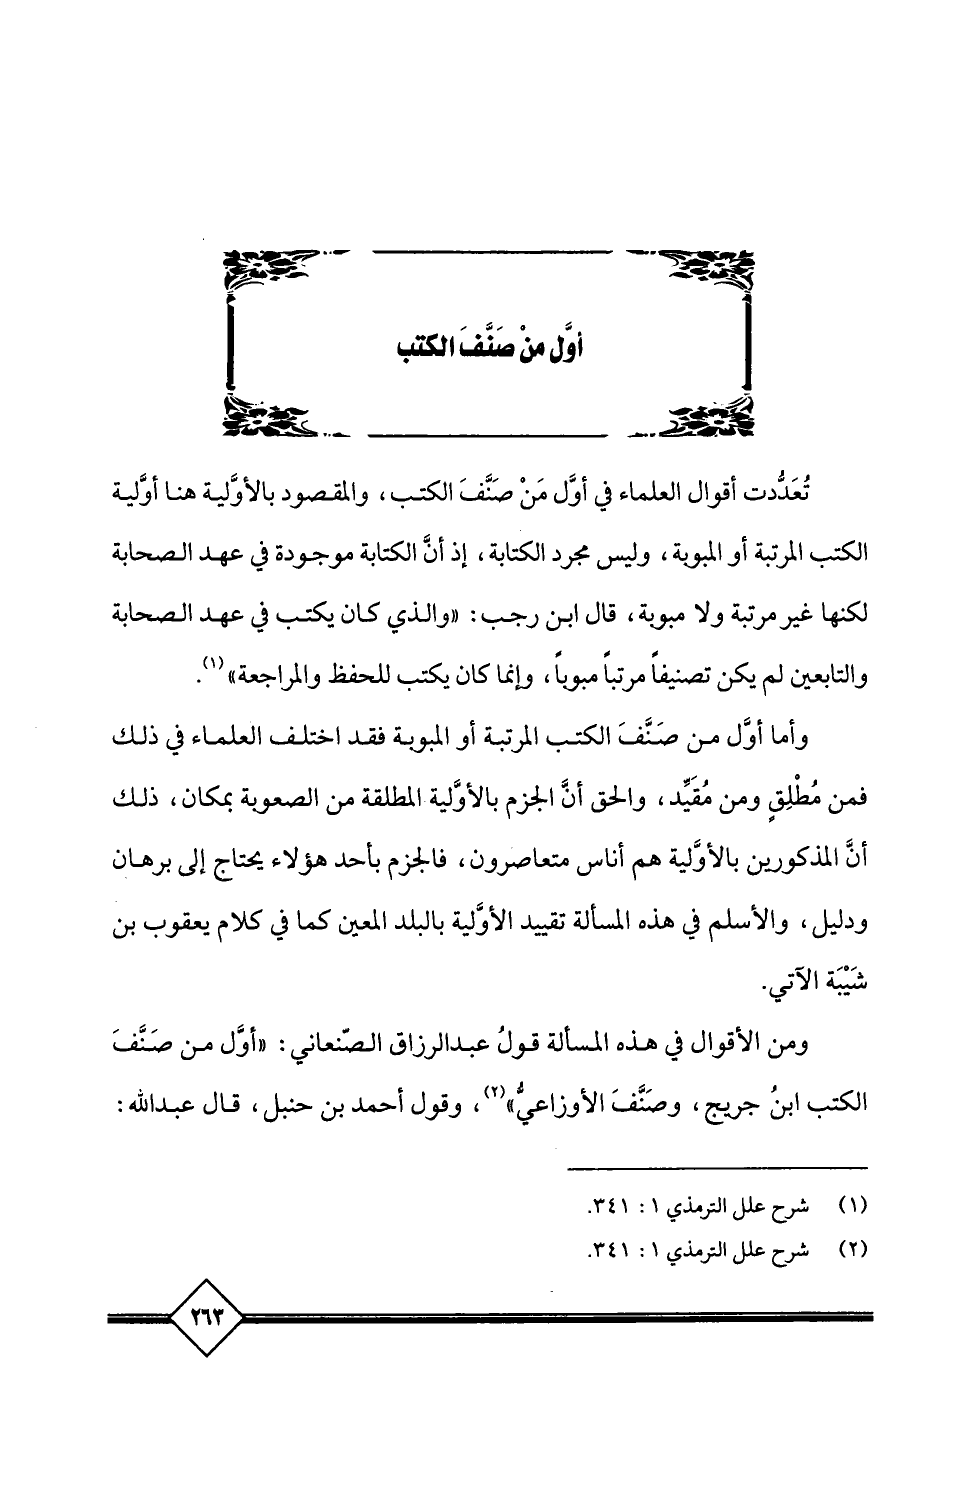 أوَّل منْ صَنَّفَ الكتب
تُعَدَّدت أقوال العلماء في أوَّل مَنْ صنَّفَ الكتب، والمقصود بالأوَّلية هنا أوَّلية
الكتب المرتبة أو المبوبة، وليس مجرد الكتابة، إذ أنَّ الكتابة موجودة في عهد الصحابة
لكنها غير مرتبة ولا مبوبة، قال ابن رجب: «والذي كان يكتب في عهد الصحابة
والتابعين لم يكن تصنيفاً مرتباً مبوباً، وإنما كان يكتب للحفظ والمراجعة»(١).
وأما أوَّل من صَنَّفَ الكتب المرتبة أو المبوبة فقد اختلف العلماء في ذلك
فمن مُطْلِقٍ ومن مُقَيِّد، والحق أنَّ الجزم بالأوَّلية المطلقة من الصعوبة بمكان، ذلك
أنَّ المذكورين بالأوَّلية هم أناس متعاصرون، فالجزم بأحد هؤلاء يحتاج إلى برهان
ودليل، والأسلم في هذه المسألة تقييد الأوَّلية بالبلد المعين كما في كلام يعقوب بن
شَيْبَة الآتي.
ومن الأقوال في هذه المسألة قولُ عبدالرزاق الصّنعاني: «أوَّل من صَنَّفَ
الكتب ابنُ جريج، وصنَّفَ الأوزاعيُّ»(٢)، وقول أحمد بن حنبل، قال عبدالله:
(١) شرح علل الترمذي ١: ٣٤١.
(٢) شرح علل الترمذي ١: ٣٤١.
٢٦٣